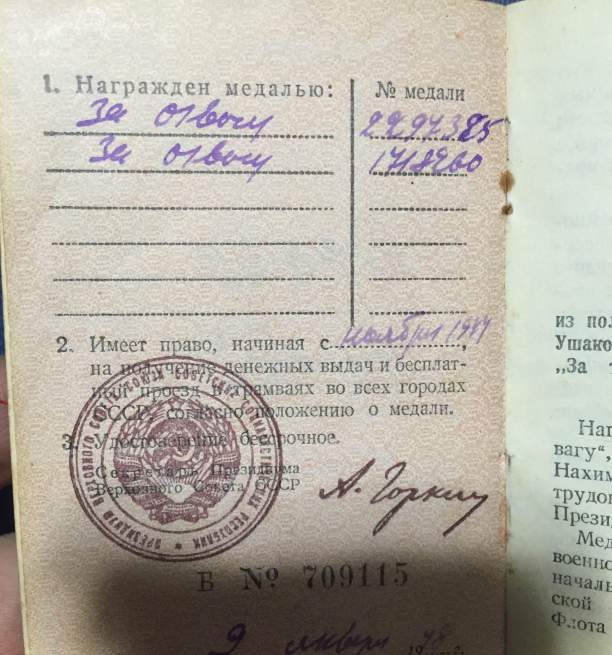 1. Награжден медалью:
№ медали
За отвагу
2297385
За отвагу
2. Имеет право, начиная с ноября 1944,
на получение денежных выдач и бесплат-
ный проезд в трамваях во всех городах
СССР, согласно положению о медали.
3. Удостоверение бессрочное.
Секретарь Президиума
Верховного Совета СССР
А. Горкин
ПРЕЗИДИУМ ВЕРХОВНОГО СОВЕТА СОЮЗА СОВЕТСКИХ СОЦИАЛИСТИЧЕСКИХ РЕСПУБЛИК
Б № 709115
9 января
из пол
Ушако
„За т
Наг
вагу“,
Нахим
трудо
Прези
Мед
военно
началь
ской
Флота